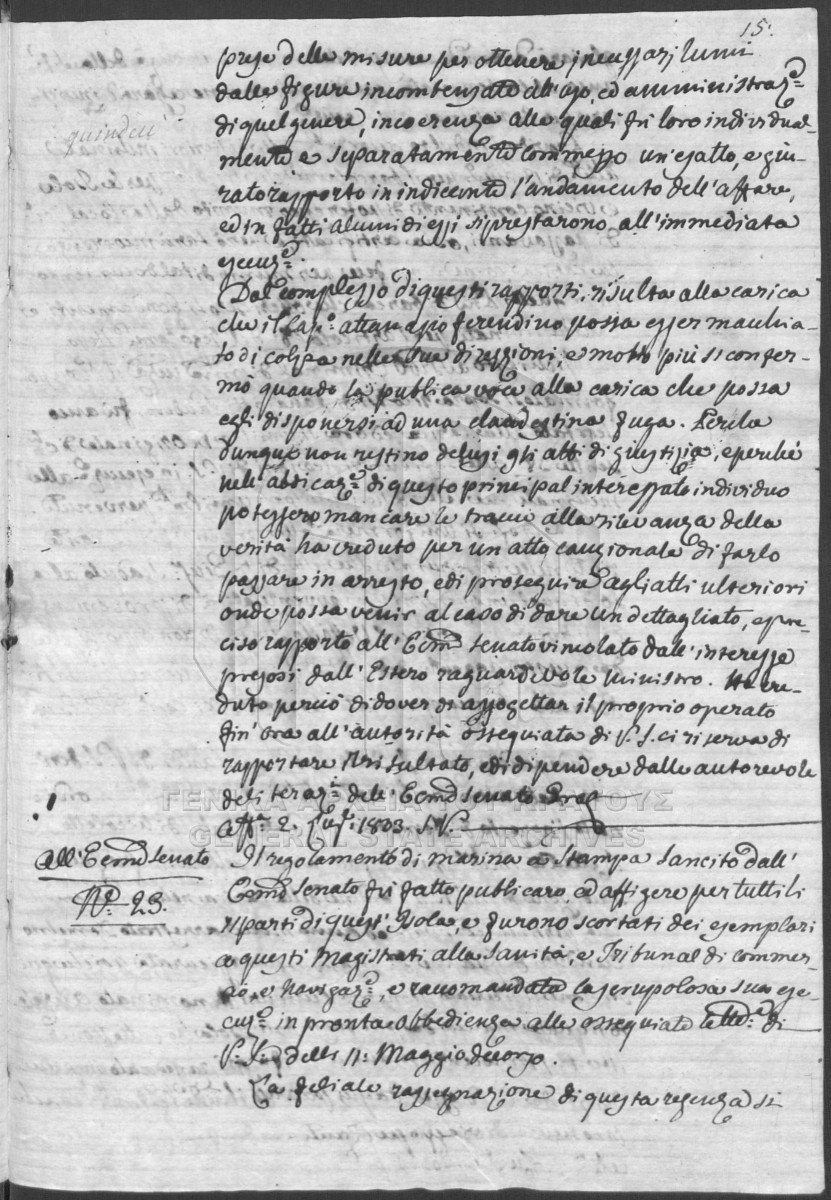 15.
prese delle misure per ottenere i necessarj lumi
dalle figure incombenzate all'uso, ed amministraz.e
di quel genere, in coerenza alle quali fù loro individual-
quindeci
mente e separatamente commesso un esatto, e giu-
rato rapporto in indicente l'andamento dell'affare,
ed in fatti alcuni di essi si prestarono all'immediata
esecuz.e
Dal complesso di questi rapporti, risulta alla carica
che il Cap.o Attanasio ferendino possa esser macchia-
to di colpa nelle sue direzzioni, e molto più si confer-
mò quando la publica voce alla carica che possa
egli disponersi ad una clandestina fuga. Perche
dunque non restino delusi gli atti di giustizia, e perché
nell' abdicaz.e di questo principal interessato individuo
potessero mancare le traccie alla rilevanza della
verità ha creduto per un atto cauzionale di farlo
passare in arresto, e di proseguire agli atti ulteriori
onde possa venir al caso di dare un dettagliato, e pre-
ciso rapporto all' Eccmo Senato vimolato dall'interesse
presosi dall' Estero raguardevole Ministro. Ha cre-
duto perciò di dover di assogettar il proprio operato
fin' ora all'autorità ossequiata di V.S. ci riserva di
rapportare il risultato, e di dipendere dalle autorevole
deliberaz.i dell' Eccmo Senato. Graz
ΓΕΝΙΚΑ ΑΡΧΕΙΑ ΤΟΥ ΚΡΑΤΟΥΣ
GENERAL STATE ARCHIVES
2. Lug.o 1803. S.V.
All' Eccmo Senato
N.o 23.
Il regolamento di marina a stampa sancito dall'
Eccmo Senato fù fatto publicare, ed affigere per tutti li
riparti di quest' Isola, e furono scortati dei esemplari
a questi Magistrati alla Sanità, e Tribunal di commer-
cio, e Navigaz.e, e racomandata la scrupolosa sua ese-
cuz.e in pronta obbedienza alle ossequiate lettere di
V.S. delli 11. Maggio decorso.
La filiale rassegnazione di questa regenza si